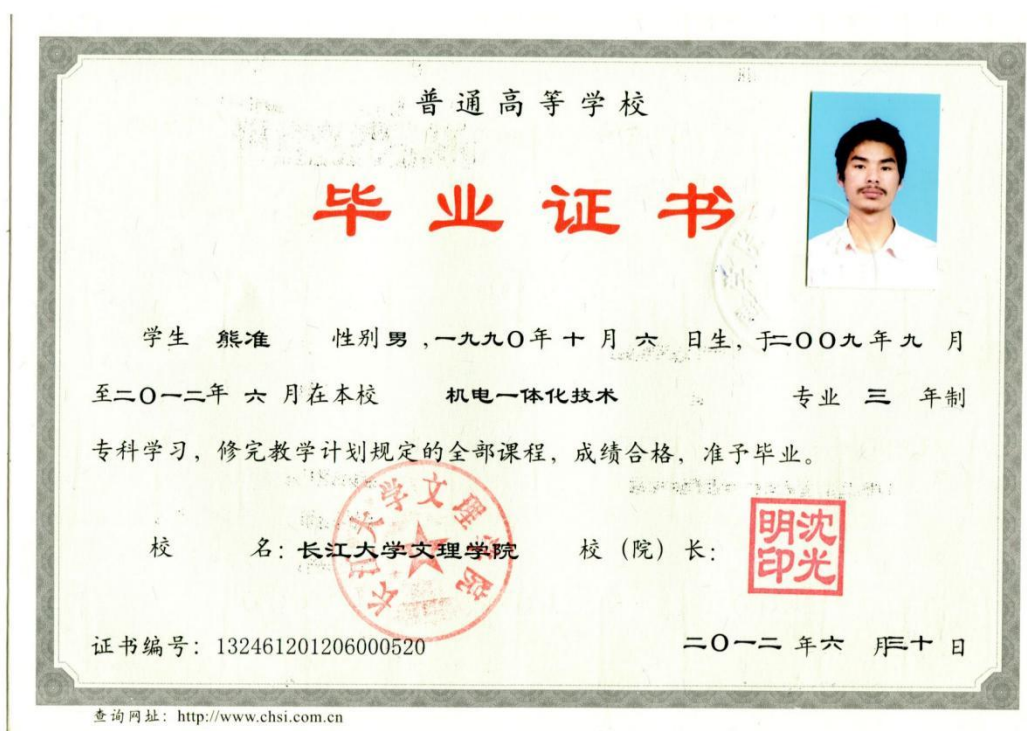 普通高等学校
毕业证书
学生 熊准 性别 男 ,一九九0年 十 月 六 日生, 于二00九年 九 月
至二0一二年 六 月在本校 机电一体化技术 专业 三 年制
专科学习, 修完教学计划规定的全部课程, 成绩合格, 准予毕业。
长江大学文理学院
校 名: 长江大学文理学院 校 (院) 长:
沈光明印
证书编号: 132461201206000520 二0一二 年六 月三十 日
查询网址: http://www.chsi.com.cn